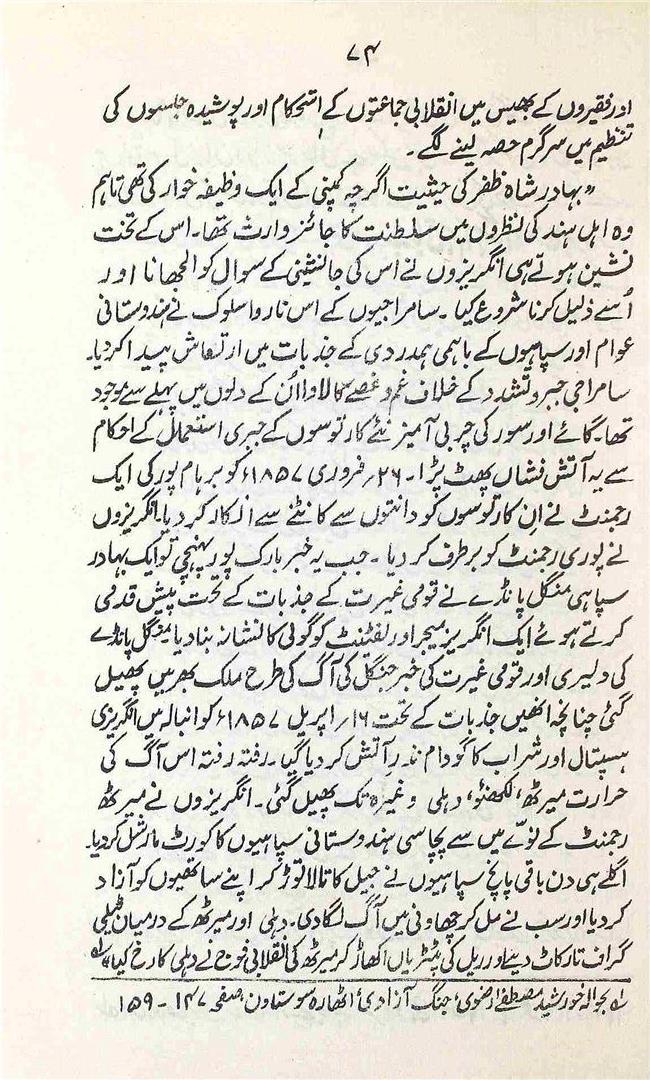 ۷۴
اور فقیروں کے بھیس میں انقلابی جماعتوں کے استحکام اور پوشیدہ جلسوں کی
تنظیم میں سرگرم حصہ لینے لگے۔
”بہادر شاہ ظفر کی حیثیت اگرچہ کمپنی کے ایک وظیفہ خوار کی تھی تاہم
وہ اہل ہند کی نظروں میں سلطنت کا جائز وارث تھا۔ اس کے تخت
نشین ہوتے ہی انگریزوں نے اس کی جانشینی کے سوال کو الجھانا اور
اُسے ذلیل کرنا شروع کیا۔ سامراجیوں کے اس ناروا سلوک نے ہندوستانی
عوام اور سپاہیوں کے باہمی ہمدردی کے جذبات میں ارتعاش پیدا کر دیا۔
سامراجی جبر و تشدد کے خلاف غم و غصے کا لاوا اُن کے دلوں میں پہلے سے موجود
تھا۔ گائے اور سور کی چربی آمیز نئے کارتوسوں کے جبری استعمال کے احکام
سے یہ آتش فشاں پھٹ پڑا۔ ۲۶؍ فروری ۱۸۵۷ء کو برہام پور کی ایک
رجمنٹ نے اِن کارتوسوں کو دانتوں سے کاٹنے سے انکار کر دیا۔ انگریزوں
نے پوری رجمنٹ کو برطرف کر دیا۔ جب یہ خبر بارک پور پہنچی تو ایک بہادر
سپاہی منگل پانڈے نے قومی غیرت کے جذبات کے تحت پیش قدمی
کرتے ہوئے ایک انگریز میجر اور لفٹننٹ کو گولی کا نشانہ بنا دیا۔ منگل پانڈے
کی دلیری اور قومی غیرت کی خبر جنگل کی آگ کی طرح ملک بھر میں پھیل
گئی چنانچہ انھیں جذبات کے تحت ۱۶؍ اپریل ۱۸۵۷ء کو انبالہ میں انگریزی
ہسپتال اور شراب کا گودام نذرِ آتش کر دیا گیا۔ رفتہ رفتہ اس آگ کی
حرارت میرٹھ، لکھنؤ، دہلی وغیرہ تک پھیل گئی۔ انگریزوں نے میرٹھ
رجمنٹ کے نوّے میں سے پچاسی ہندوستانی سپاہیوں کا کورٹ مارشل کر دیا۔
اگلے ہی دن باقی پانچ سپاہیوں نے جیل کا تالا توڑ کر اپنے ساتھیوں کو آزاد
کر دیا اور سب نے مل کر چھاونی میں آگ لگا دی۔ دہلی اور میرٹھ کے درمیان ٹیلی
گراف تار کاٹ دیئے اور ریل کی پٹریاں اکھاڑ کر میرٹھ کی انقلابی فوج نے دہلی کا رخ کیا“ ؎۱
؎۱ بحوالہ خورشید مصطفےٰ رضوی، جنگ آزادیٔ اٹھارہ سو ستاون، صفحہ ۱۴۷ - ۱۵۹